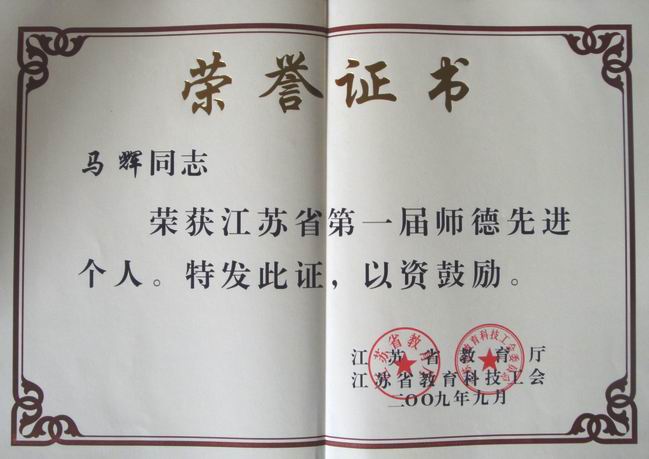 荣誉证书
马辉同志
荣获江苏省第一届师德先进
个人。特发此证，以资鼓励。
江苏省教育厅
江苏省教育科技工会
二〇〇九年九月